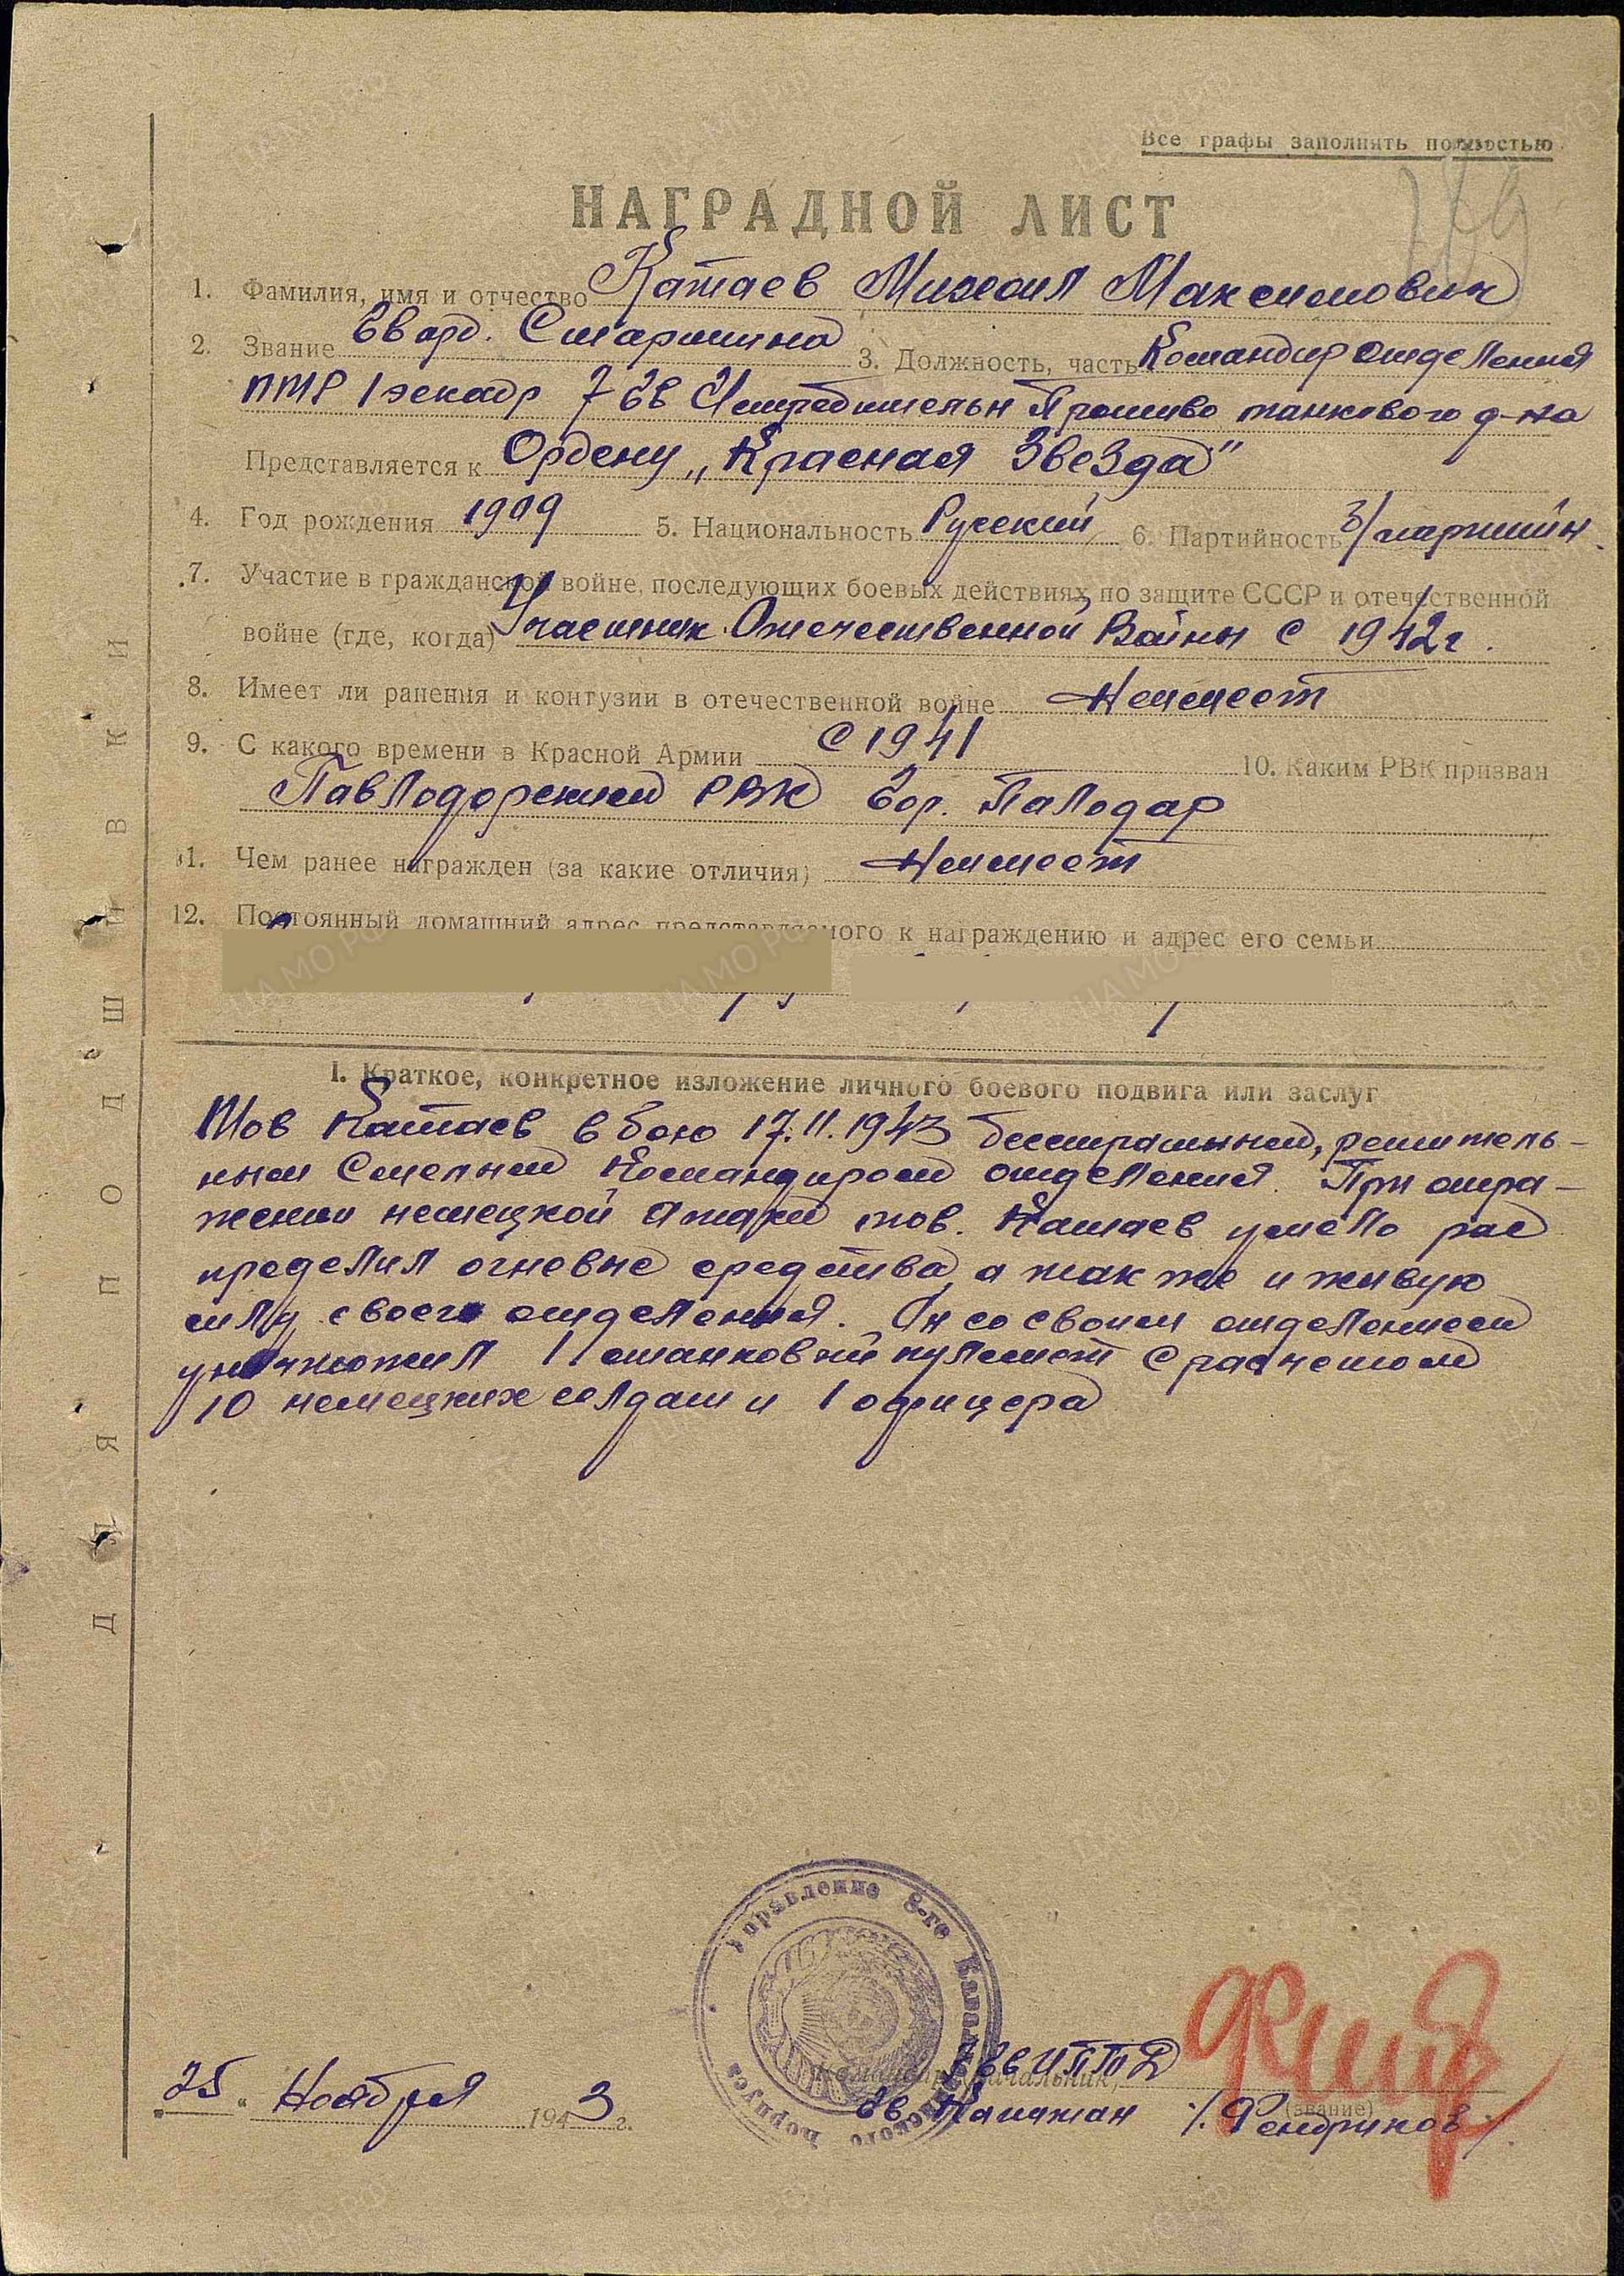 Все графы заполнять полностью
НАГРАДНОЙ ЛИСТ
1. Фамилия, имя и отчество Катаев Михаил Максимович
2. Звание Гвард. Старшина 3. Должность, часть Командир отделения
ПТР 1 эскадр 7 Гв Истребительн Противо танкового д-на
Представляется к Ордену „Красная Звезда"
4. Год рождения 1909 5. Национальность Русский 6. Партийность б/партийн.
7. Участие в гражданской войне, последующих боевых действиях по защите СССР и отечественной
войне (где, когда) Участник Отечественной Войны с 1942г.
8. Имеет ли ранения и контузии в отечественной войне Неимеет
9. С какого времени в Красной Армии С 1941 10. Каким РВК призван
Павлодорским РВК Гор. Палодар
11. Чем ранее награжден (за какие отличия) Неимеет
12. Постоянный домашний адрес представляемого к награждению и адрес его семьи
I. Краткое, конкретное изложение личного боевого подвига или заслуг
Тов Катаев в бою 17.11.1943 бесстрашным, решитель-
ным Смелым Командиром отделения. При отра-
жении немецкой Атаки тов. Катаев умело рас
пределил огневые средства, а так же и живую
силу своего отделения. Он со своим отделением
уничтожил 1 станковый пулемет с расчетом
10 немецких солдат и 1 офицера
ДЛЯ ПОДШИВКИ
Управление 8-го Кавалерийского Корпуса
Командир (начальник) 7 Гв ИПТД
Гв. Капитан /Фендриков/
(звание)
„25" Ноября 1943 г.
ЦАМО РФ